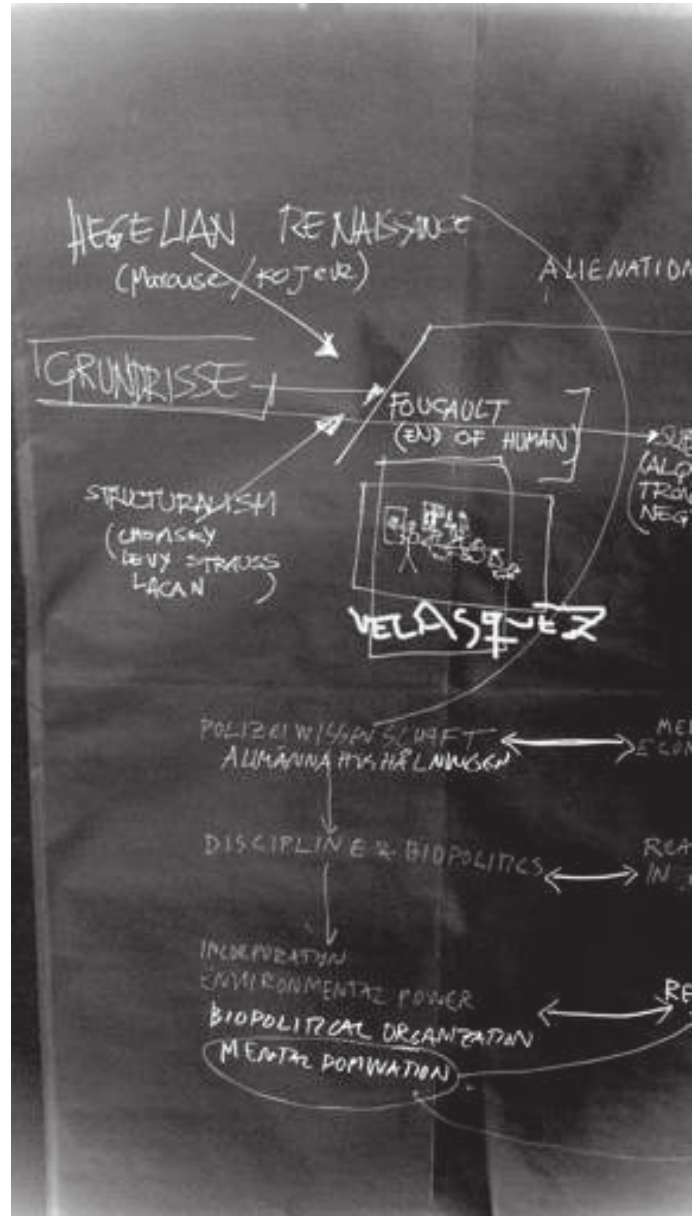 HEGELIAN RENAISSANCE
(Marcuse/KOJEVE)
ALIENATION
GRUNDRISSE
FOUCAULT
(END OF HUMAN)
STRUCTURALISM
(CHOMSKY
LEVY STRAUSS
LACAN)
(ALQ
TRON
NEG
VELASQUEZ
POLIZEIWISSENSCHAFT
ALLMÄNNA HUSHÅLNINGEN
ECON
DISCIPLINE & BIOPOLITICS
REA
IN
INCORPORATION
ENVIRONMENTAL POWER
RE
BIOPOLITICAL ORGANIZATION
MENTAL DOMINATION